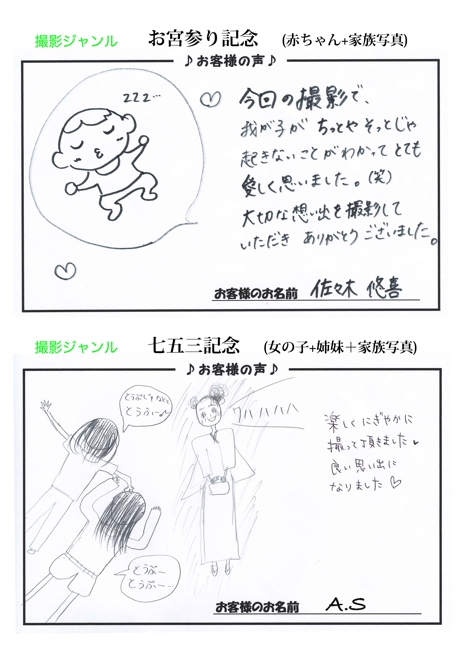 撮影ジャンル お宮参り記念 (赤ちゃん+家族写真)
♪お客様の声♪
zzz…
今回の撮影で、
我が子が ちっとや そっとじゃ
起きないことがわかって とても
愛しく思いました。(笑)
大切な想い出を撮影して
いただき ありがとう ございました。
お客様のお名前 佐々木 悠喜
撮影ジャンル 七五三記念 (女の子+姉妹＋家族写真)
♪お客様の声♪
とうふ〜♪
ワハハハハ
楽しくにぎやかに
撮って頂きました♥
良い思い出に
なりました♡
とうふ〜
とうふ〜…
お客様のお名前 A.S